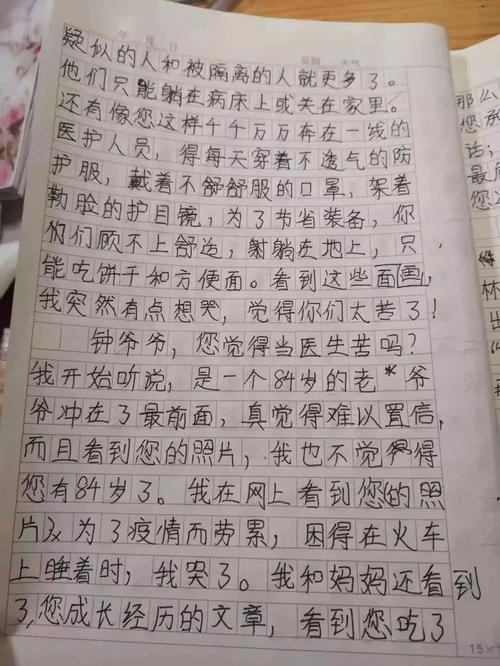 年 月 日 星期 天气
疑似的人和被隔离的人就更多了。
他们只能躺在病床上或关在家里。
还有像您这样千千万万奔在一线的
医护人员，得每天穿着不透气的防
护服，戴着不舒舒服的口罩，架着
勒脸的护目镜，为了节省装备，你
们们顾不上舒适，躺躺在地上，只
能吃饼干和方便面。看到这些画面，
我突然有点想哭，觉得你们太苦了！
钟爷爷，您觉得当医生苦吗？
我开始听说，是一个84岁的老*爷
爷冲在了最前面，真觉得难以置信，
而且看到您的照片，我也不觉得
您有84岁了。我在网上看到您的照
片为了疫情而劳累，困得在火车
上睡着时，我哭了。我和妈妈还看到
了，您成长经历的文章，看到您吃了
那么
您承
话；
最后
您这
林
出
15×